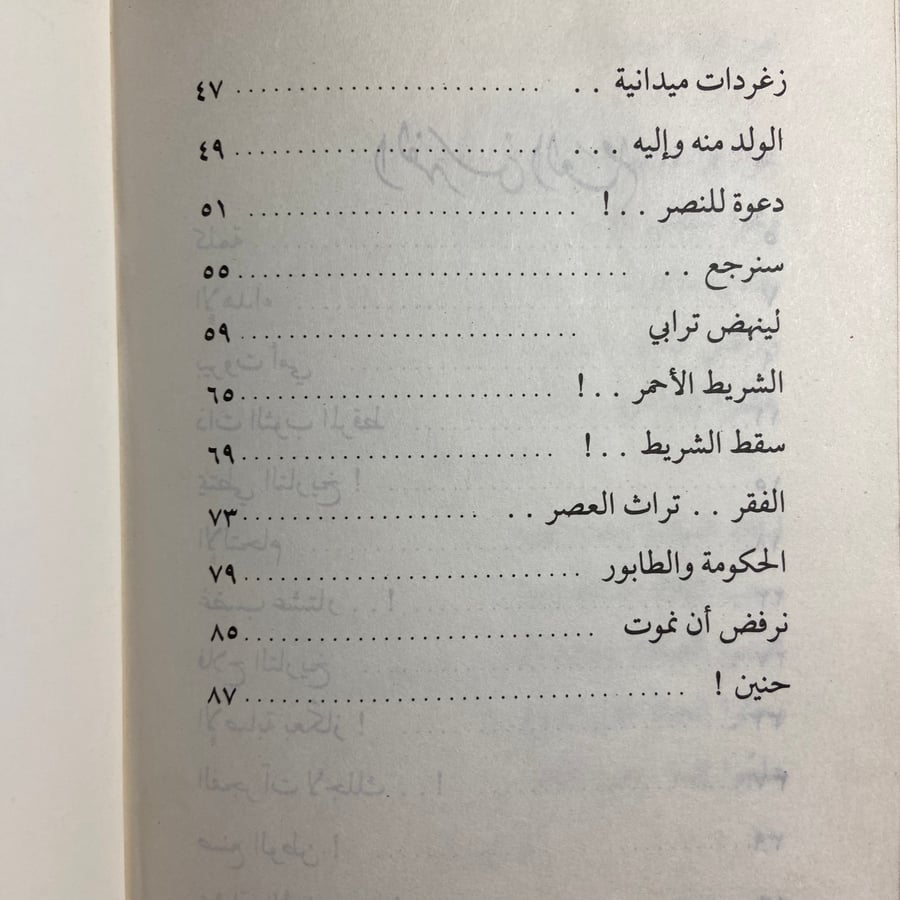 زغردات ميدانية . . ٤٧
الولد منه وإليه . . . ٤٩
دعوة للنصر . . ! ٥١
سنرجع . . ٥٥
لينهض ترابي ٥٩
الشريط الأحمر . . ! ٦٥
سقط الشريط . . ! ٦٩
الفقر . . تراث العصر . . ٧٣
الحكومة والطابور ٧٩
نرفض أن نموت ٨٥
حنين ! ٨٧